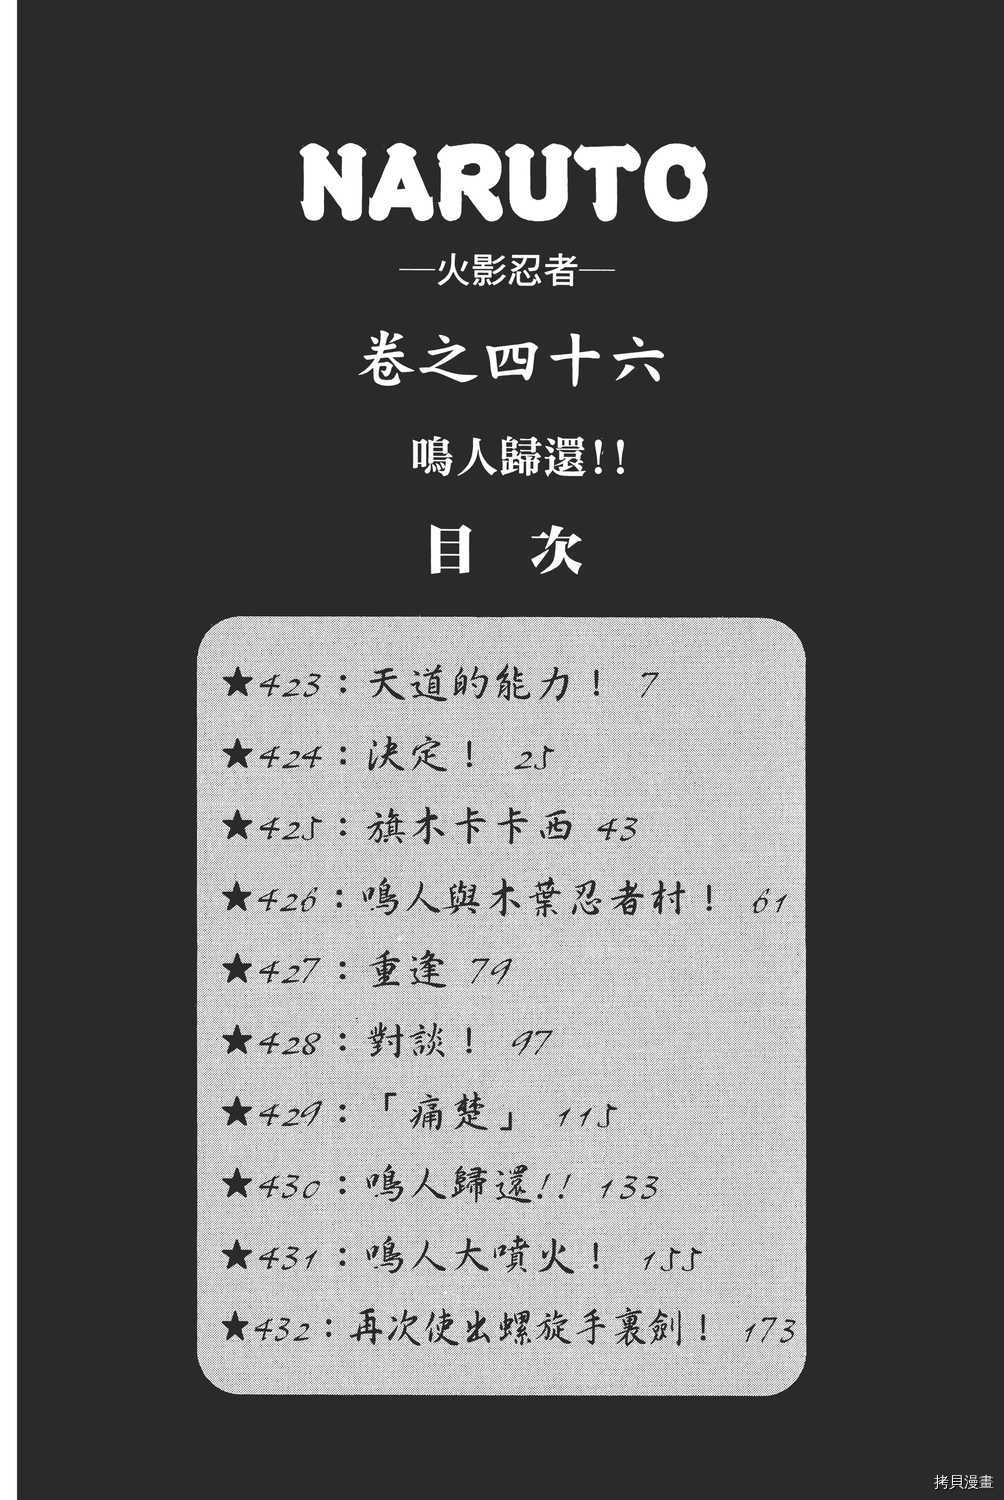 NARUTO
—火影忍者—
卷之四十六
鳴人歸還!!
目 次
★423：天道的能力！ 7
★424：決定！ 25
★425：旗木卡卡西 43
★426：鳴人與木葉忍者村！ 61
★427：重逢 79
★428：對談！ 97
★429：「痛楚」 115
★430：鳴人歸還!! 133
★431：鳴人大噴火！ 155
★432：再次使出螺旋手裏劍！ 173
拷貝漫畫